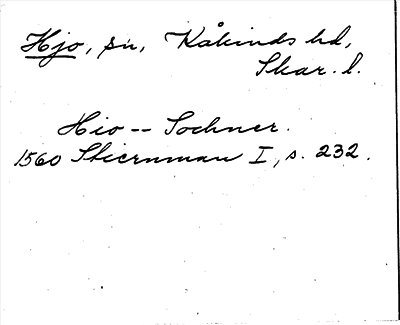 Hjo, sn, Kåkinds hd,
Skar. l.
Hio -- Sochner.
1560 Stiernman I, s. 232.